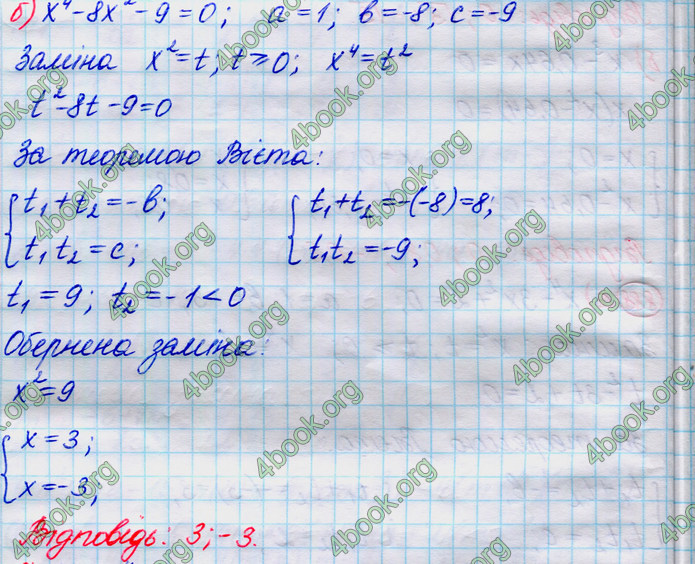 б) x⁴-8x²-9=0; a=1; b=-8; c=-9
Заміна x²=t, t≥0; x⁴=t²
t²-8t-9=0
За теоремою Вієта:
{t₁+t₂=-b; {t₁+t₂=-(-8)=8;
t₁t₂=c; t₁t₂=-9;
t₁=9; t₂=-1<0
Обернена заміна:
x²=9
{x=3;
x=-3;
Відповідь: 3; -3.
4book.org